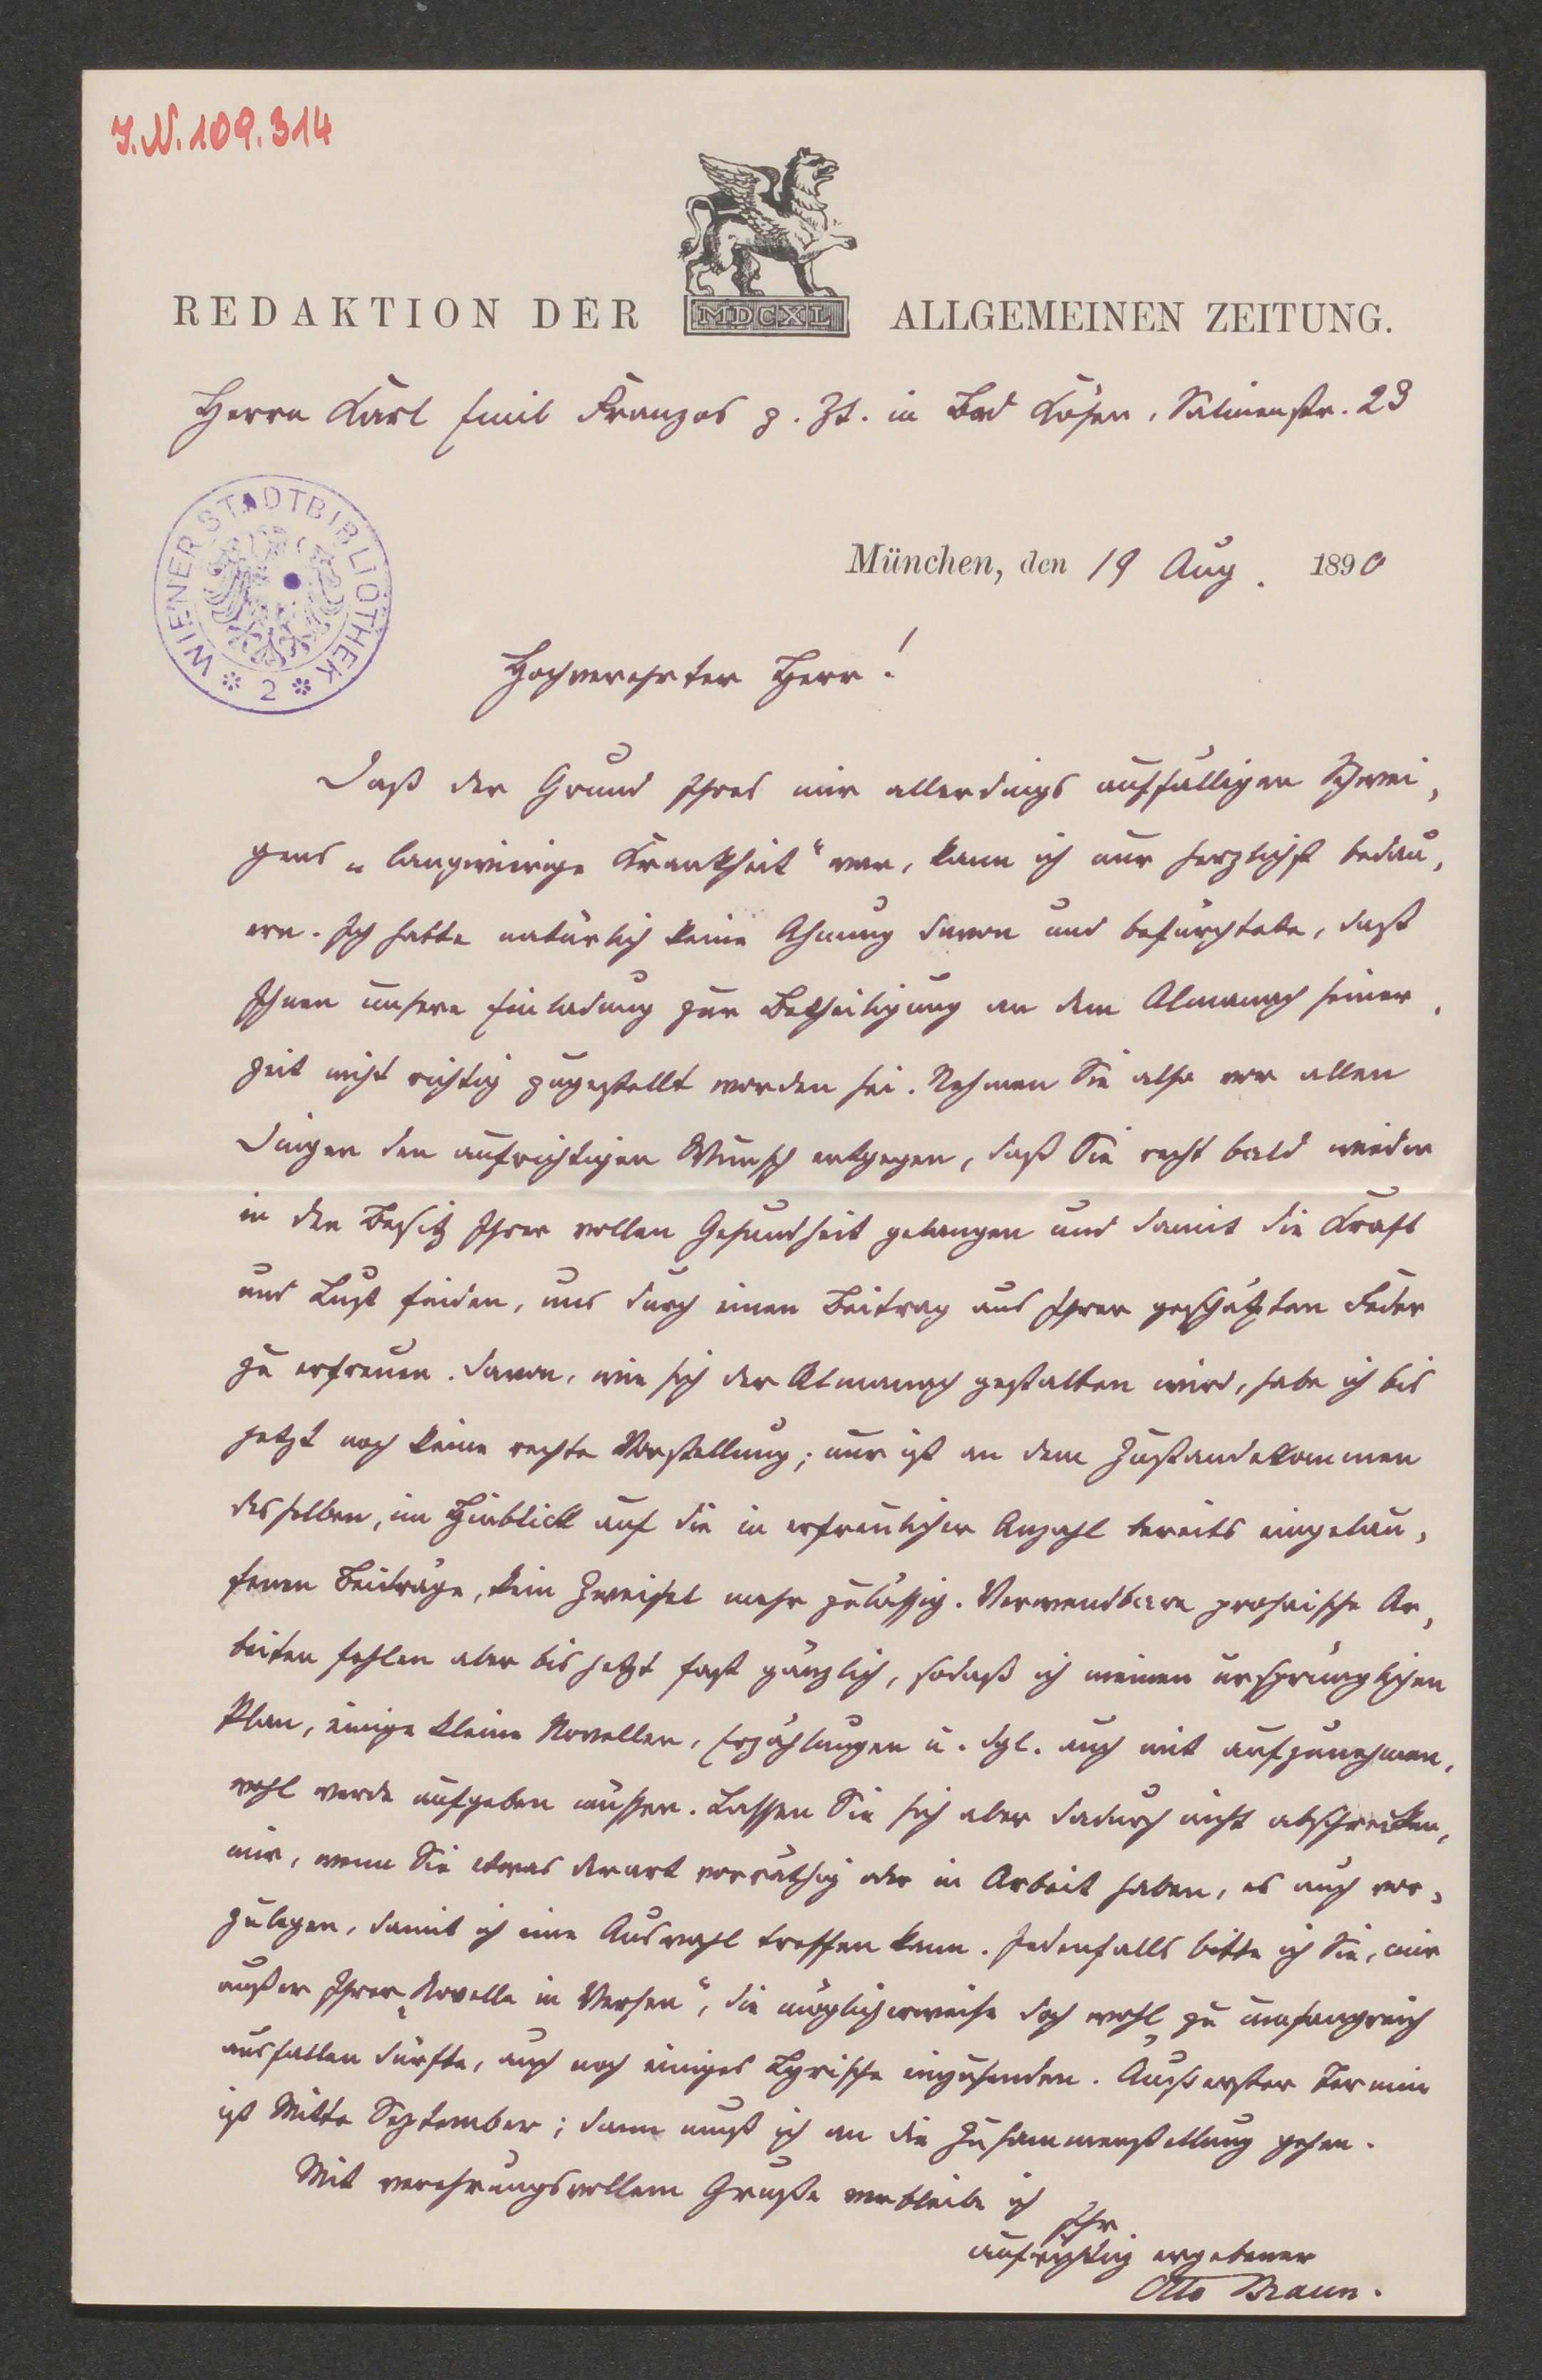 J.N. 109.314
REDAKTION DER MDCXL ALLGEMEINEN ZEITUNG.
Herrn Karl Emil Franzos z. Zt. in Bad Kösen, Salinenstr. 23
WIENER STADTBIBLIOTHEK * 2 *
München, den 19 Aug. 1890
Hochverehrter Herr!
Daß der Grund Ihres mir allerdings auffälligen Schwei-
gens „langwierige Krankheit“ war, kann ich nur herzlichst bedau-
ern. Ich hatte natürlich keine Ahnung davon und befürchtete, daß
Ihnen unsere Einladung zur Betheiligung an dem Almanach seiner-
zeit nicht richtig zugestellt worden sei. Nehmen Sie also vor allen
Dingen den aufrichtigen Wunsch entgegen, daß Sie recht bald wieder
in den Besitz Ihrer vollen Gesundheit gelangen und damit die Kraft
und Lust finden, uns durch einen Beitrag aus Ihrer geschätzten Feder
zu erfreuen. Davon, wie sich der Almanach gestalten wird, habe ich bis
jetzt noch keine rechte Vorstellung; nur ist an dem Zustandekommen
desselben, im Hinblick auf die in erfreulicher Anzahl bereits eingelau-
fenen Beiträge, kein Zweifel mehr zulässig. Verwendbare prosaische Ar-
beiten fehlen aber bis jetzt fast gänzlich, sodaß ich meinen ursprünglichen
Plan, einige kleine Novellen, Erzählungen u. dgl. auch mit aufzunehmen,
wohl werde aufgeben müssen. Lassen Sie sich aber dadurch nicht abschrecken,
mir, wenn Sie etwas derart vorräthig oder in Arbeit haben, es auch vor-
zulegen, damit ich eine Auswahl treffen kann. Jedenfalls bitte ich Sie, mir
außer Ihrer „Novelle in Versen“, die möglicherweise doch wohl zu umfangreich
ausfallen dürfte, auch noch einiges Lyrische einzusenden. Äußerster Termin
ist Mitte September; dann muß ich an die Zusammenstellung gehen.
Mit verehrungsvollem Gruße verbleibe ich
Ihr
aufrichtig ergebener
Otto Braun.